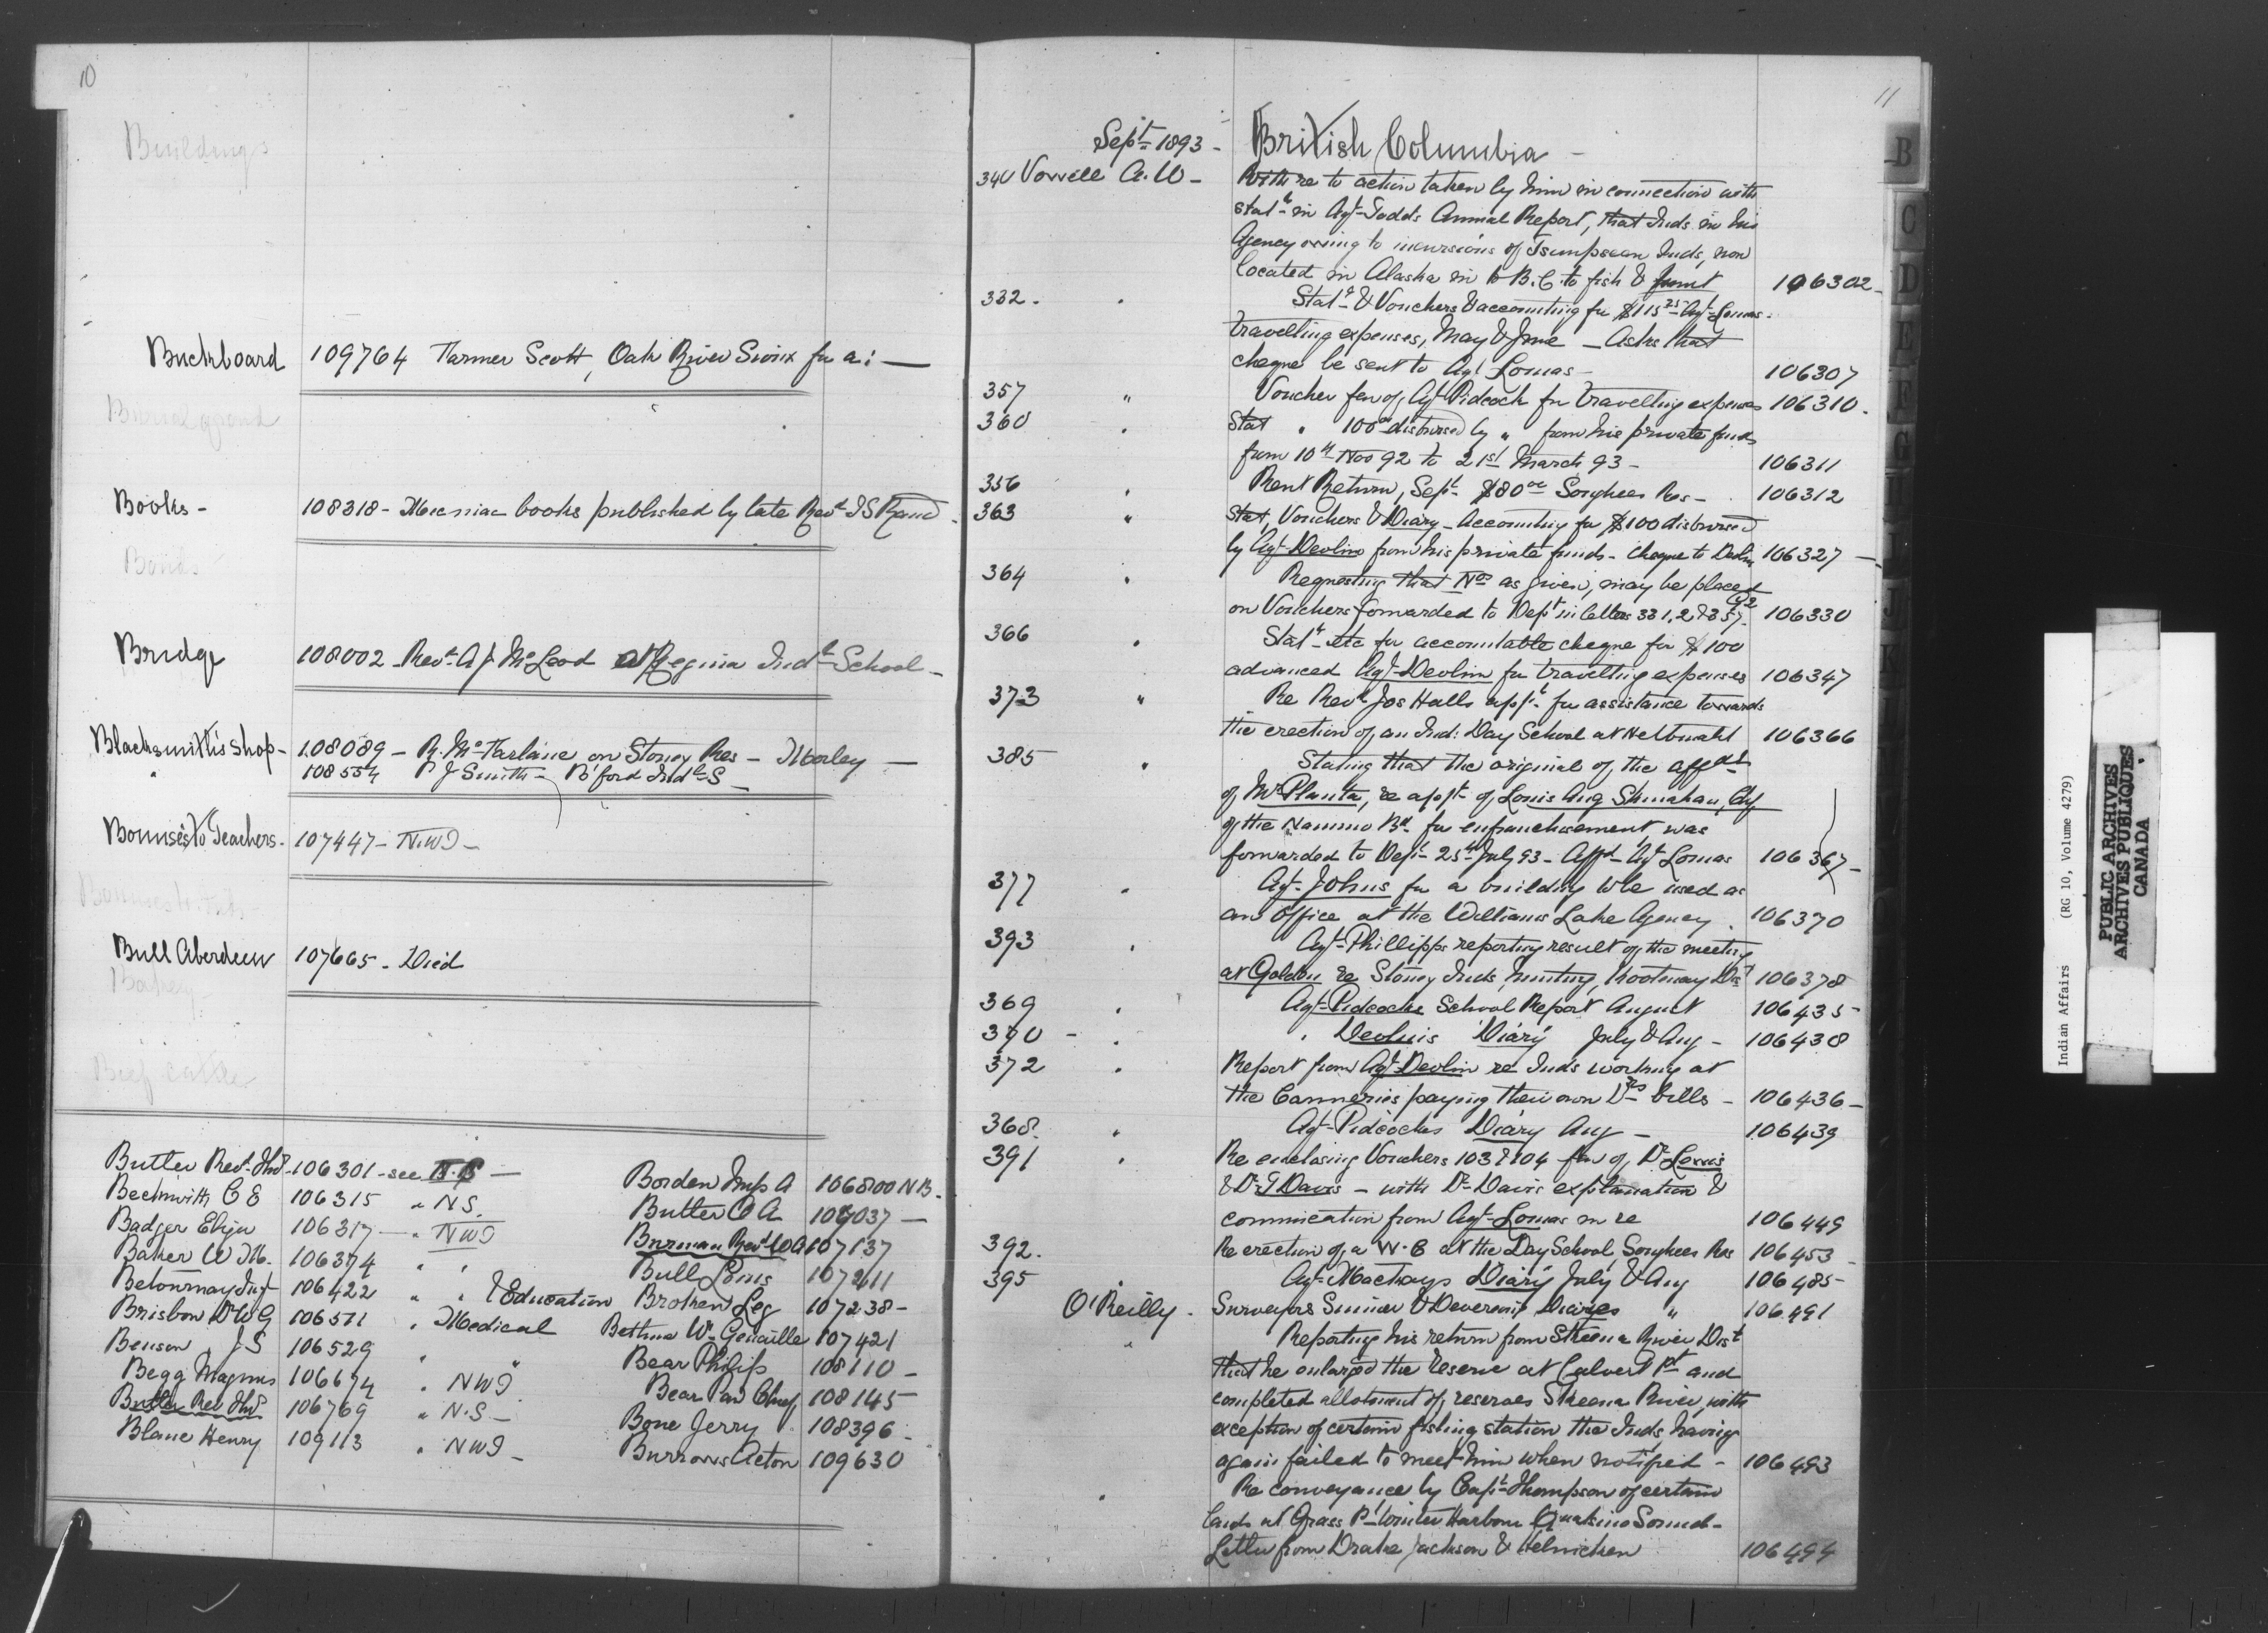 10
Buildings
Buckboard 109764 Farmer Scott, Oak River Sioux for a: —
Burial ground
Books - 108318 - Micmac books published by late Revd. S Rand -
Bonds
Bridge 108002 - Revd. A J McLeod at Regina Indl. School -
Blacksmith's shop - 108089 - R. McFarlane on Stoney Res - Morley —
" 108554 P J Smith - B'ford Indl. S -
Bonuses to Teachers - 107447 - N.W.T -
Bull Aberdeen 107665 - Died
Bakery
Beef cattle
Butler Revd. Jno. 106301 - see N.S —
Beckwith C E 106315 " N S.
Badger Elija 106317 — " NWT
Baker W M. 106374 " "
Betournay Just 106422 " " & Education
Brisbon Dr W G 106571 " Medical
Benson J S 106529 " "
Begg Magnus 106674 " NWT
Butler Rev Jno. 106769 " N.S —
Blane Henry 109113 " NWT -
Borden Insp A 106800 N B -
Butler O A 107037 —
Burman Revd. W A 107137
Bull Louis 107211
Broken Leg 107238 -
Bethune Wm. Genaille 107421
Bear Philip 108110 -
Bear Paw Chief 108145
Bone Jerry 108396 -
Burrows Acton 109630
11
Sept. 1893 - British Columbia -
340 Vowell A. W - With re to action taken by him in connection with
statt. in Agt. Todds Annual Report, that Inds in his
Agency owing to incursions of Tsimpsean Inds, now
located in Alaska in to B. C. to fish & hunt 106302 -
332 - " Statt. & Vouchers accounting for $115.25 Agt. Lomas -
travelling expenses, May & June - Asks that
cheque be sent to Agt. Lomas - 106307
357 " Voucher fav of Agt. Pidcock for travelling expenses 106310 -
360 " Stat " 100.00 disbursed by " from his private funds
from 10th Nov 92 to 21st March 93 - 106311
356 " Rent Return, Sept. $80.00 Songhees Res - 106312
363 " Stat, Vouchers & Diary - Accounting for $100 disbursed
by Agt. Devlin from his private funds - cheque to Devlin 106327 —
364 " Requesting that Nos. as given, may be placed
on Vouchers forwarded to Dept. in letters 331, 2 & 357. 106330
366 " Statt. etc for accountable cheque for $100
advanced Agt. Devlin for travelling expenses 106347
373 " Re Revd. Jos Halls appt. for assistance towards
the erection of an Ind: Day School at 106366
385 " Stating that the original of the affdt.
of Mr. Planta, re appt. of Louis Aug
of the Nanaimo Bd. for enfranchisement was
forwarded to Dept. 25th July 93 - Affd. Agt. Lomas 106367 -
377 " Agt. Johns for a building to be used as
an office at the Williams Lake Agency. 106370
393 " Agt. Phillipps reporting result of the meeting
at Golden re Stoney Inds, hunting, Kootenay Dist 106378
369 " Agt. Pidcocks School Report August 106435 -
370 - " " Devlins Diary July & Aug - 106438
372 " Report from Agt. Devlin re Inds working at
the Canneries paying their own Drs. bills - 106436 -
368. " Agt. Pidcocks Diary Aug - 106439
391 " Re enclosing Vouchers 103 & 104 fav of, Dr. Lewis
& Dr. T Davis - with Dr. Davis explanation &
commication from Agt. Lomas in re 106449
392. " Re erection of a W. C at the Day School, Songhees Res 106453
395 " Agt. Mackays Diary July & Aug 106485 -
O'Reilly - Surveyors Skinner & Devereux Diaries " 106491
" Reporting his return from Skeena River Dist.
that he enlarged the reserve at Calvert Pt. and
completed allotment of reserves Skeena River, with
exception of certain fishing station the Inds having
again failed to meet him when notified - 106493
" Re conveyance by Capt. Thompson of certain
lands at Grass Pt. Winter Harbour Quatsino Sound -
Letter from Drake Jackson & Helmcken 106494
B
C
D
E
F
G
H
I
J
K
Indian Affairs (RG 10, Volume 4279)
PUBLIC ARCHIVES
ARCHIVES PUBLIQUES
CANADA